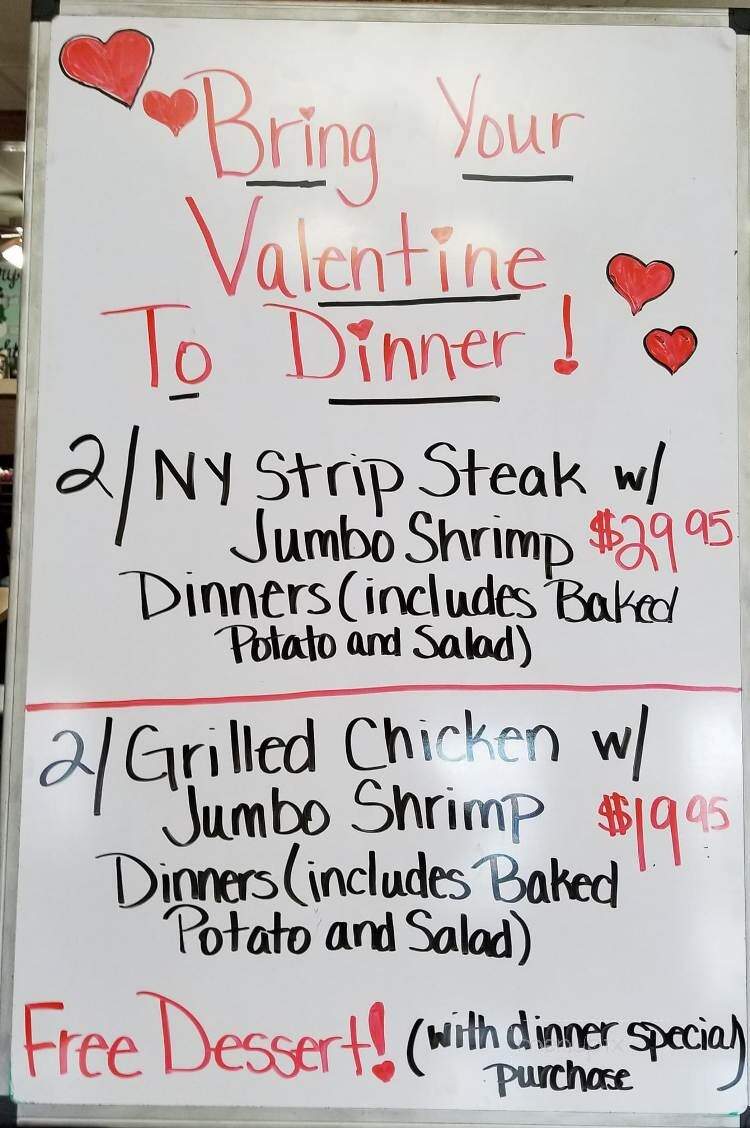 Bring Your
Valentine
To Dinner!
2/NY Strip Steak w/
Jumbo Shrimp $29 95
Dinners (includes Baked
Potato and Salad)
2/Grilled Chicken w/
Jumbo Shrimp $19 95
Dinners (includes Baked
Potato and Salad)
Free Dessert! (with dinner special)
purchase